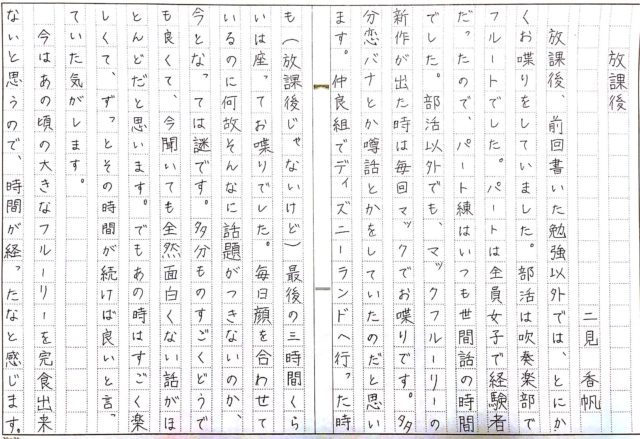 放課後
二見　香帆
放課後、前回書いた勉強以外では、とにか
くお喋りをしていました。部活は吹奏楽部で
フルートでした。パートは全員女子で経験者
だったので、パート練はいつも世間話の時間
でした。部活以外でも、マックフルーリーの
新作が出た時は毎回マックでお喋りです。多
分恋バナとか噂話とかをしていたのだと思い
ます。仲良組でディズニーランドへ行った時
も（放課後じゃないけど）最後の三時間くら
いは座ってお喋りでした。毎日顔を合わせて
いるのに何故そんなに話題がつきないのか、
今となっては謎です。多分ものすごくどうで
も良くて、今聞いても全然面白くない話がほ
とんどだと思います。でもあの時はすごく楽
しくて、ずっとその時間が続けば良いと言っ
ていた気がします。
今はあの頃の大きなフルーリーを完食出来
ないと思うので、時間が経ったなと感じます。